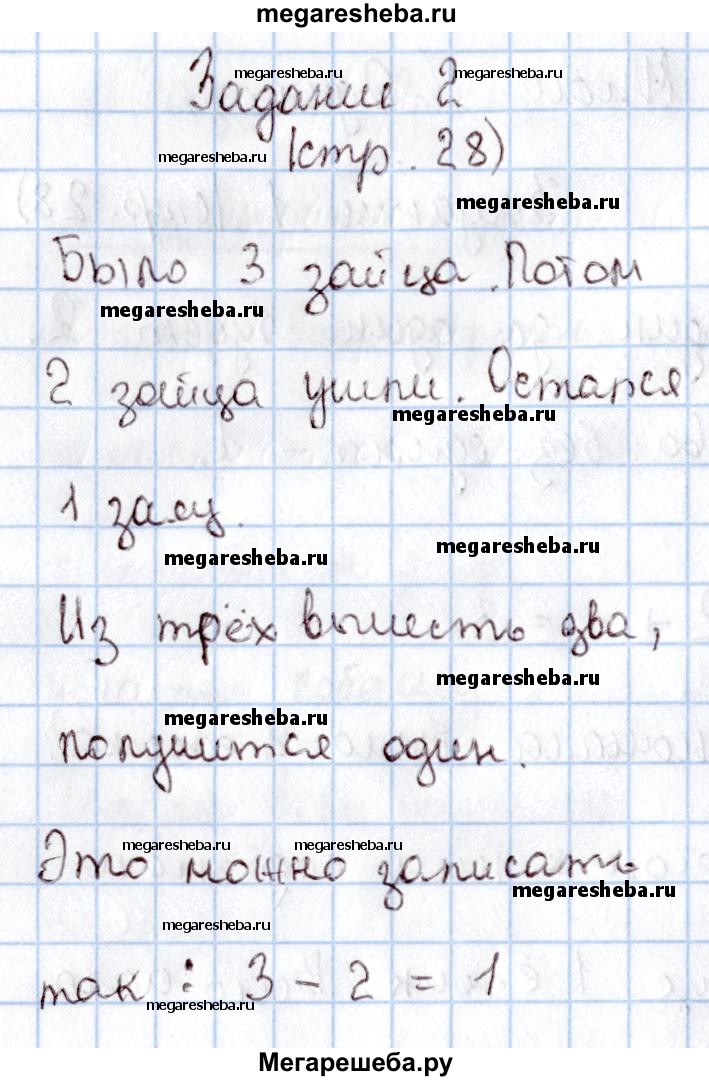 megaresheba.ru
Задание 2
megaresheba.ru megaresheba.ru
(стр. 28)
megaresheba.ru
megaresheba.ru
Было 3 зайца. Потом
megaresheba.ru
2 зайца ушли. Остался
megaresheba.ru
1 заяц.
megaresheba.ru
megaresheba.ru
Из трёх вычесть два,
megaresheba.ru
megaresheba.ru
получится один.
megaresheba.ru megaresheba.ru
Это можно записать
megaresheba.ru
megaresheba.ru
так: 3 - 2 = 1
megaresheba.ru
Мегарешеба.ру